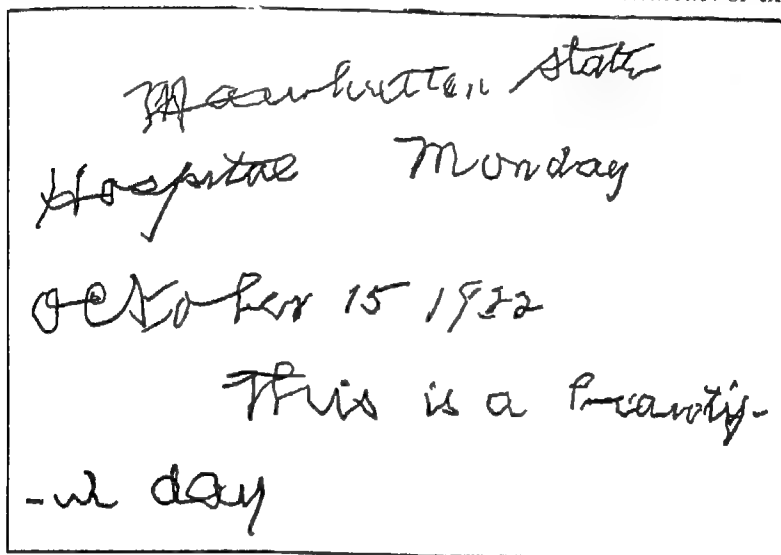 Manhutten State
Hospital Monday
October 15 1922
This is a beautif-
-ul day